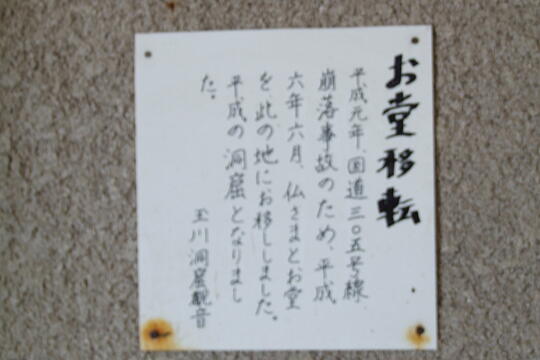 お堂移転
平成元年、国道三〇五号線
崩落事故のため、平成
六年六月、仏さまとお堂
を此の地にお移ししました。
平成の洞窟となりまし
た。
玉川洞窟観音